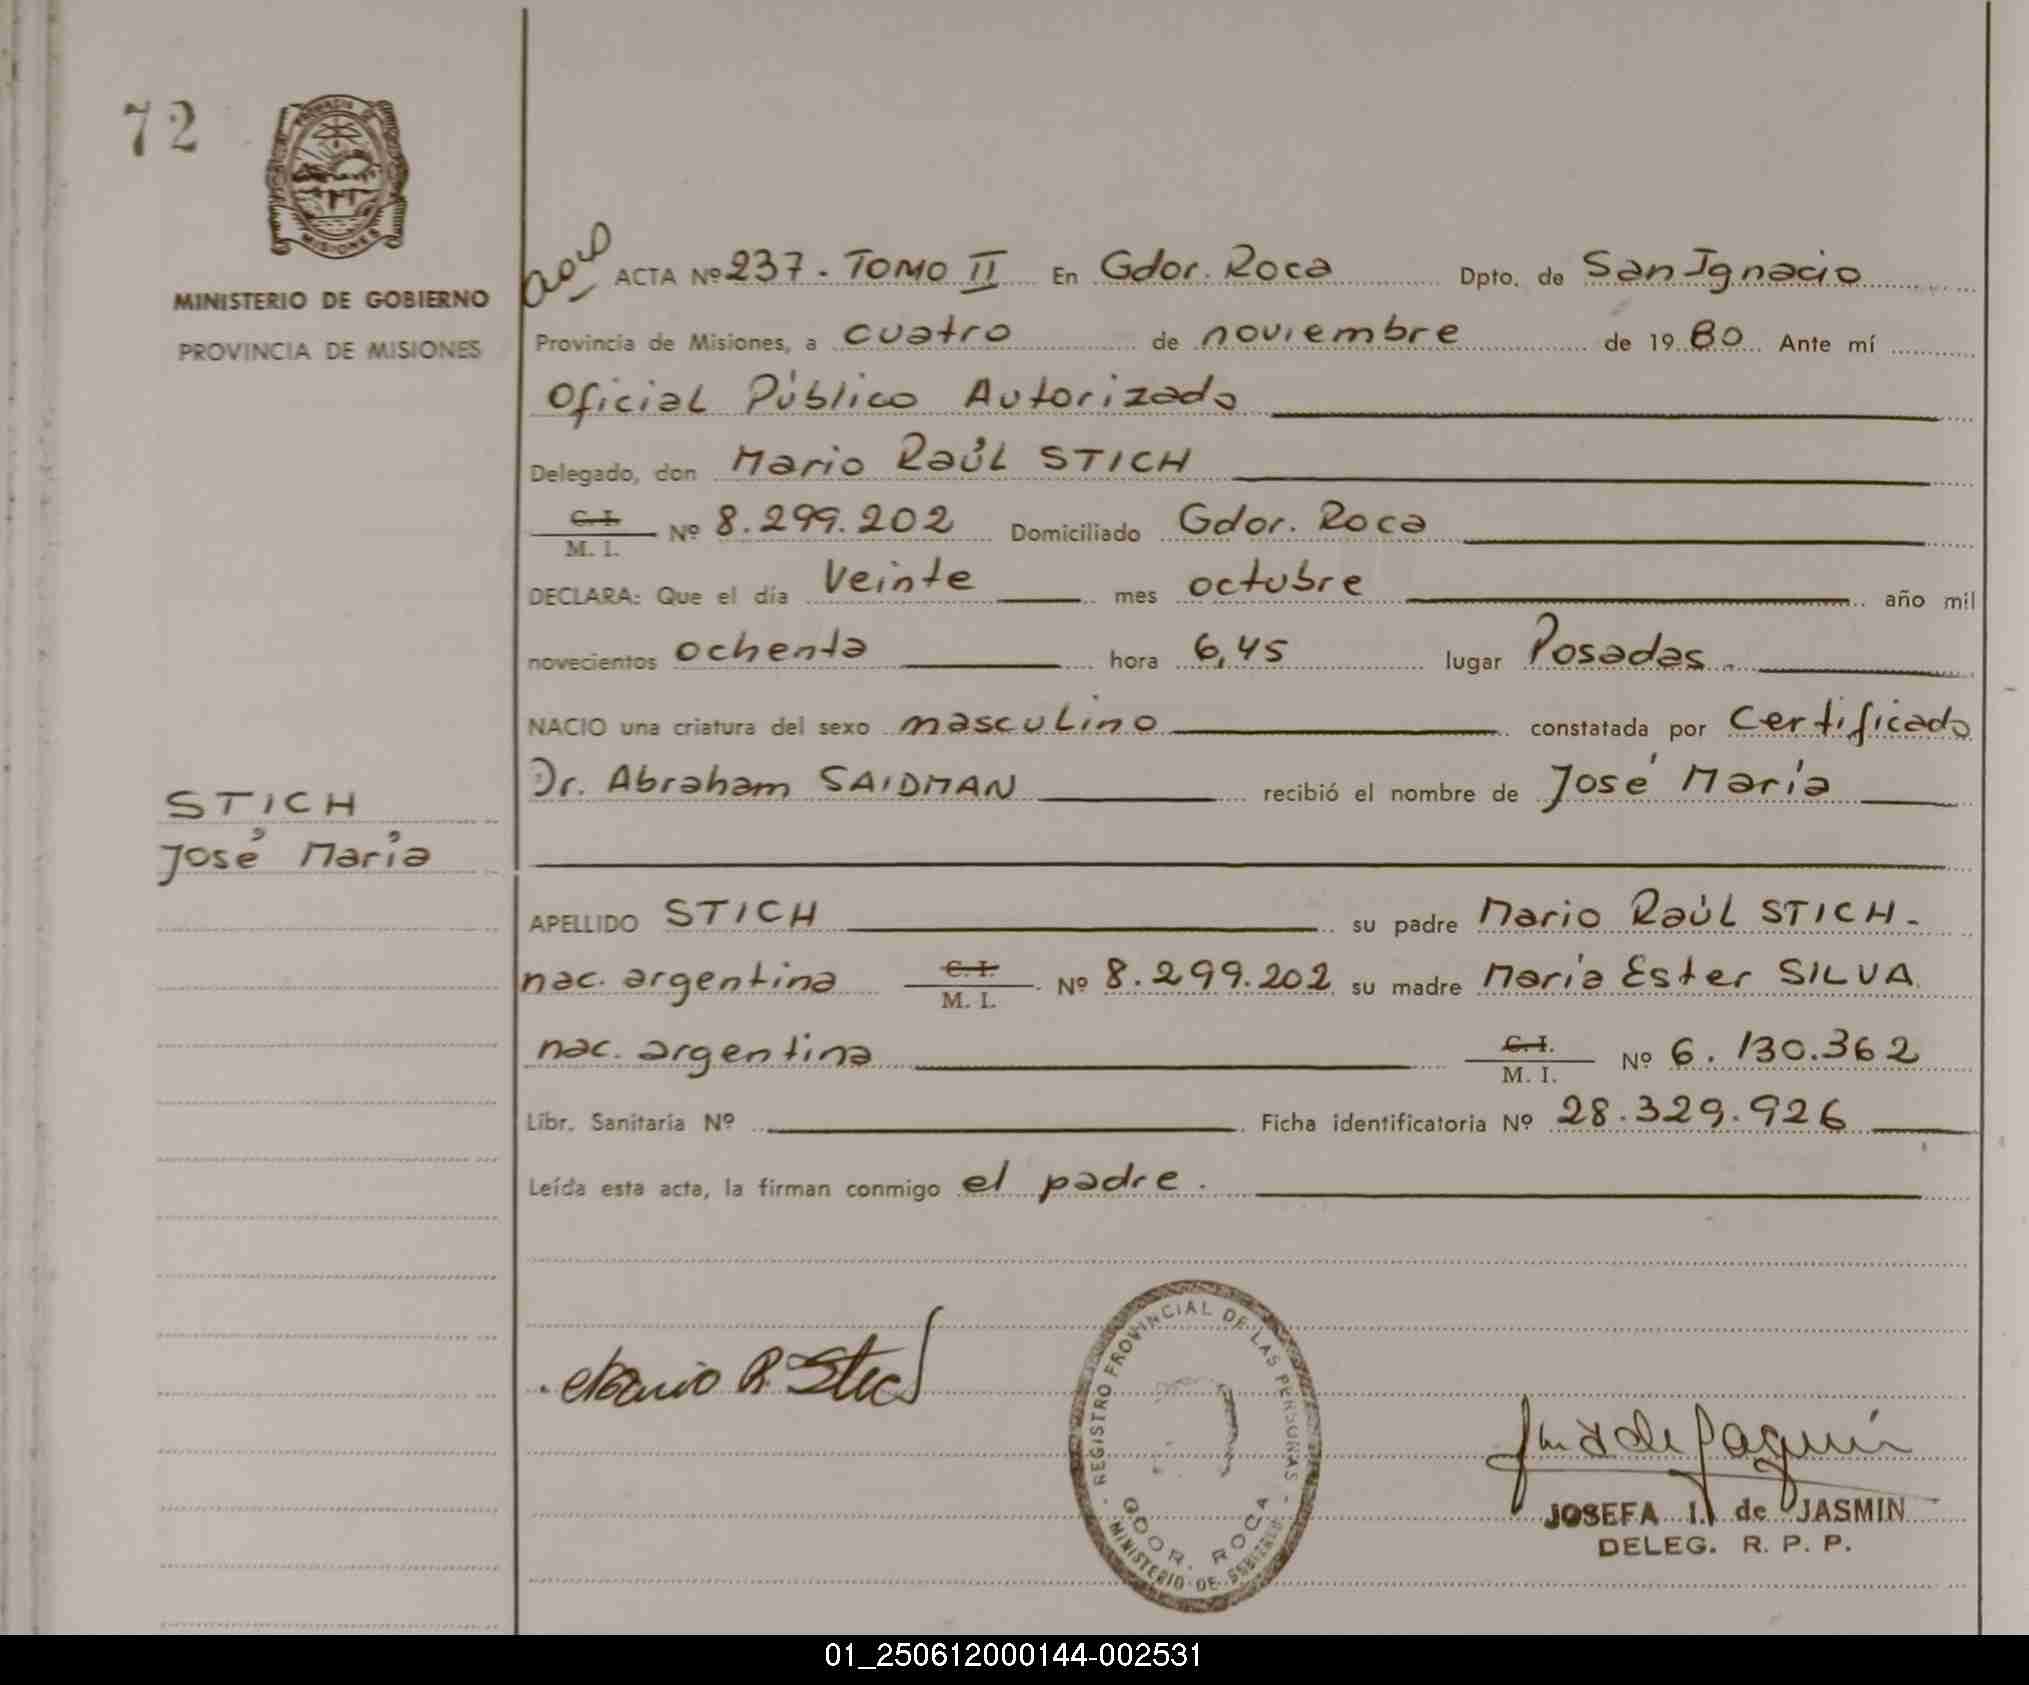 72
PROVINCIA DE
MISIONES
MINISTERIO DE GOBIERNO
PROVINCIA DE MISIONES
ACTA Nº 237. TOMO II En Gdor. Roca Dpto. de San Ignacio
Provincia de Misiones, a cuatro de noviembre de 1980 Ante mí
Oficial Público Autorizado
Delegado, don Mario Raúl STICH
C. I.
M. I. Nº 8.299.202 Domiciliado Gdor. Roca
DECLARA: Que el día Veinte mes octubre año mil
novecientos ochenta hora 6,45 lugar Posadas.
NACIO una criatura del sexo masculino constatada por Certificado
Dr. Abraham SAIDMAN recibió el nombre de José María
STICH
José María
APELLIDO STICH su padre Mario Raúl STICH.
nac. argentina C. I. M. I. Nº 8.299.202 su madre María Ester SILVA
nac. argentina C. I. M. I. Nº 6.130.362
Libr. Sanitaria Nº Ficha identificatoria Nº 28.329.926
Leída esta acta, la firman conmigo el padre.
Mario R. Stich
REGISTRO PROVINCIAL DE LAS PERSONAS
GDOR. ROCA
MINISTERIO DE GOBIERNO
JOSEFA I. de JASMIN
DELEG. R. P. P.
01_250612000144-002531